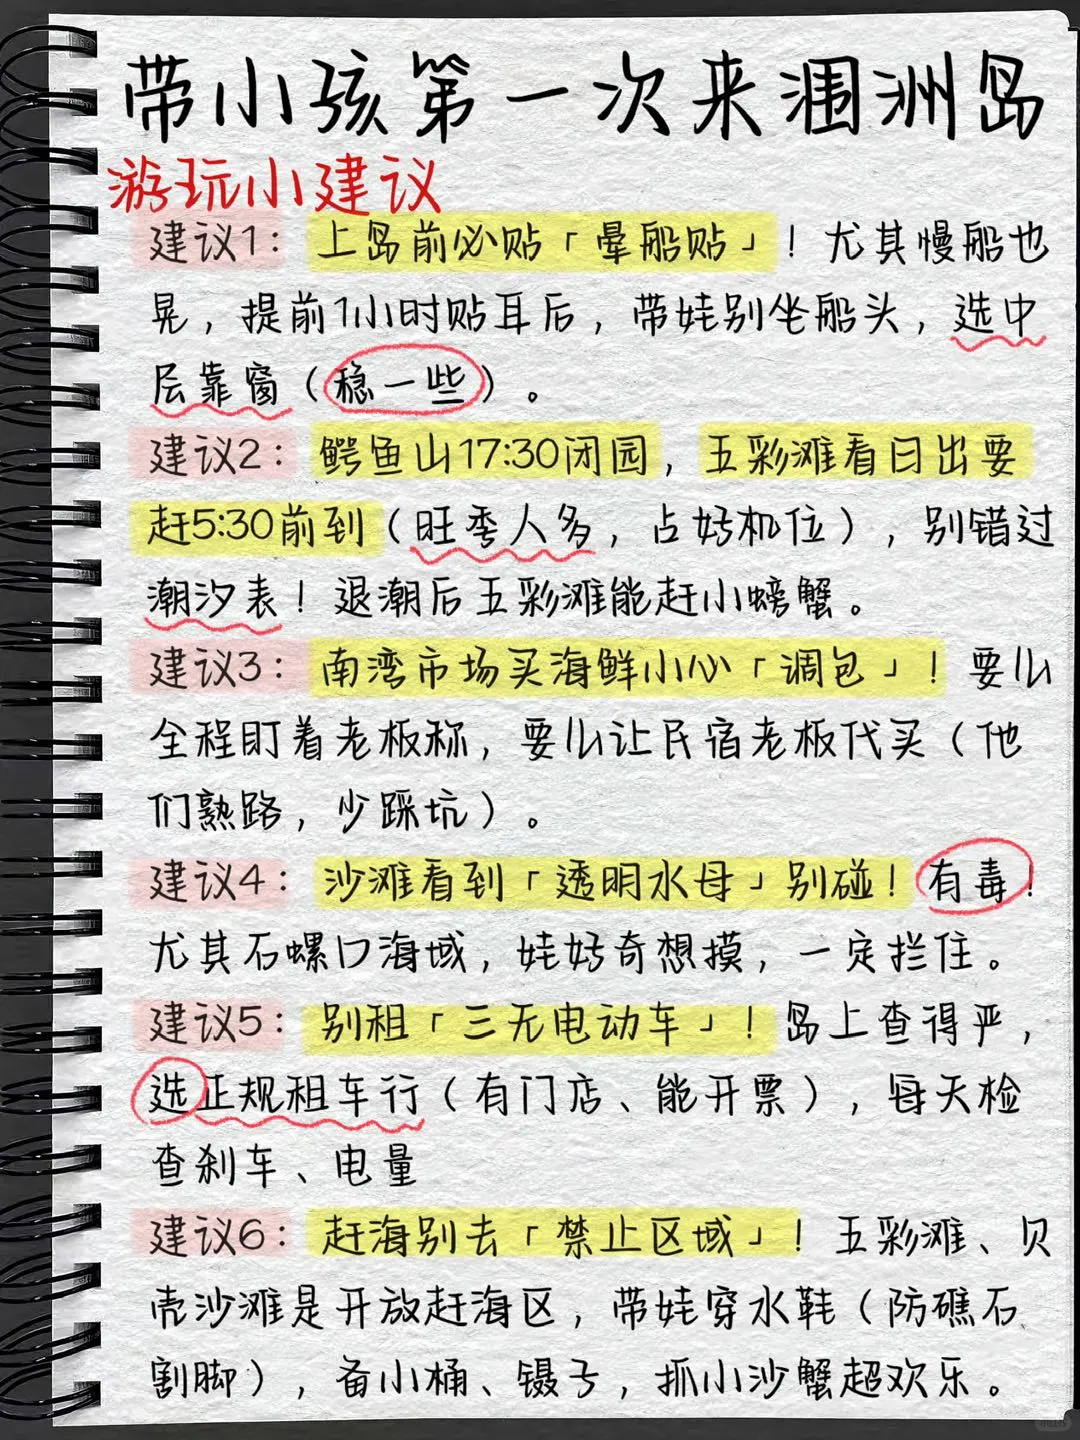 带小孩第一次来涠洲岛
游玩小建议
建议1：上岛前必贴「晕船贴」！尤其慢船也
晃，提前1小时贴耳后，带娃别坐船头，选中
层靠窗（稳一些）。
建议2：鳄鱼山17:30闭园，五彩滩看日出要
赶5:30前到（旺季人多，占好机位），别错过
潮汐表！退潮后五彩滩能赶小螃蟹。
建议3：南湾市场买海鲜小心「调包」！要么
全程盯着老板称，要么让民宿老板代买（他
们熟路，少踩坑）。
建议4：沙滩看到「透明水母」别碰！有毒！
尤其石螺口海域，娃好奇想摸，一定拦住。
建议5：别租「三无电动车」！岛上查得严，
选正规租车行（有门店、能开票），每天检
查刹车、电量
建议6：赶海别去「禁止区域」！五彩滩、贝
壳沙滩是开放赶海区，带娃穿水鞋（防礁石
割脚），备小桶、镊子，抓小沙蟹超欢乐。